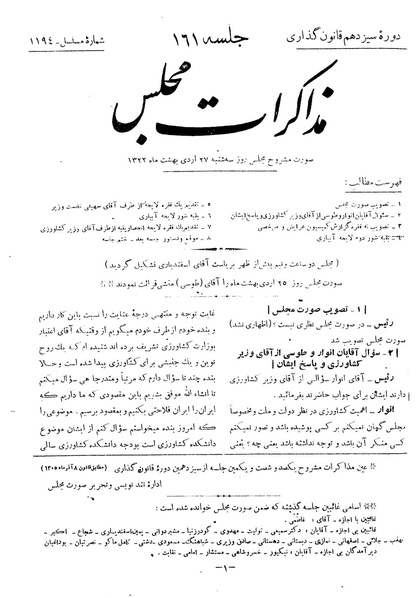 دورهٔ سیزدهم قانون گذاری
جلسه ۱۶۱
شمارهٔ مسلسل - ۱۱۹۴
مذاکرات مجلس
صورت مشروح مجلس روز سه‌شنبه ۲۷ اردی بهشت ماه ۱۳۲۲
فهرست مطالب:
۱ - تصویب صورت مجلس
۲ - سؤال آقایان انوار و طوسی از آقای وزیر کشاورزی و پاسخ ایشان
۳ - تصویب سه فقره گزارش کمیسیون عرایض و مرخصی
۴ - بقیه شور دوم لایحه آبیاری
۵ - تقدیم یك فقره لایحه از طرف آقای سهیلی نخست وزیر
۶ - بقیه شور لایحه آبیاری
۷ - تقدیم یك فقره لایحه از طرف آقای وزیر کشاورزی
۸ - موقع و دستور جلسه بعد - ختم جلسه
(مجلس دو ساعت و نیم پیش از ظهر بریاست آقای اسفندیاری تشکیل گردید)
صورت مجلس روز ۲۵ اردی بهشت ماه را آقای (طوسی) منشی قرائت نمودند
۱ - تصویب صورت مجلس
رئیس - در صورت مجلس نظری نیست؟ (اظهاری نشد)
صورت مجلس تصویب شد
۲ - سؤال آقایان انوار و طوسی از آقای وزیر
کشاورزی و پاسخ ایشان
رئیس - آقای انوار سؤالی از آقای وزیر کشاورزی
دارند ایشان برای جواب حاضرند بفرمائید.
انوار - اهمیت کشاورزی در نظر دولت و ملت و مخصوصاً
مجلس گمان نمیکنم بر کسی پوشیده باشد و تصور نمیکنم
کسی منکر آن باشد و توجه نداشته باشد یعنی چه؟ یعنی
غایت توجه و منتهی درجهٔ عنایت را نسبت باین کار داریم
و بنده خودم از طرف خودم میگویم از وقتیکه آقای اعتبار
بوزارت کشاورزی تشریف برده اند شنیده‌ام که یك روح
نوین و یك جنبشی برای کشاورزی پیدا شده است و حالا
بنده چند تا سؤال دارم که مرتباً و متدرجاً هی سؤال میکنم
تا انشاء الله موفق بشریم باین مقصودی که ما داریم که
ایران را ایران فلاحتی بکنیم و بمقصود برسیم. موضوعی را
که امروز بنده میخواستم سؤال کنم از ایشان موضوع
دانشکده کشاورزی است بودجه دانشکده کشاورزی سالی
* عین مذاکرات مشروح یکصد و شصت و یکمین جلسه از سیزدهمین دورهٔ قانون گذاری (مطابق قانون ۸ آذرماه ۱۳۰۵)
اداره تند نویسی و تحریر صورت مجلس
* اسامی غائبین جلسه گذشته که ضمن صورت مجلس خوانده شده است:
غائبین با اجازه - آقای: فاطمی.
غائبین بی اجازه - آقایان: دکتر سمیعی - نوابت - مهدوی - گودرزنیا - مشیر دوانی - یمین اسفندیاری - شجاع - اکبر -
نهب - جلائی - اصفهانی - نمازی - دبستانی - دهستانی - صادق وزیری - شباهنگ - مسعودی - دشتی - کامل ماکو - نصرتیان - بوداغیان
دیر آمدگان بی اجازه - آقایان: نیکپور - خسروشاهی - مستشار - امامی - نقابت.
-۱-